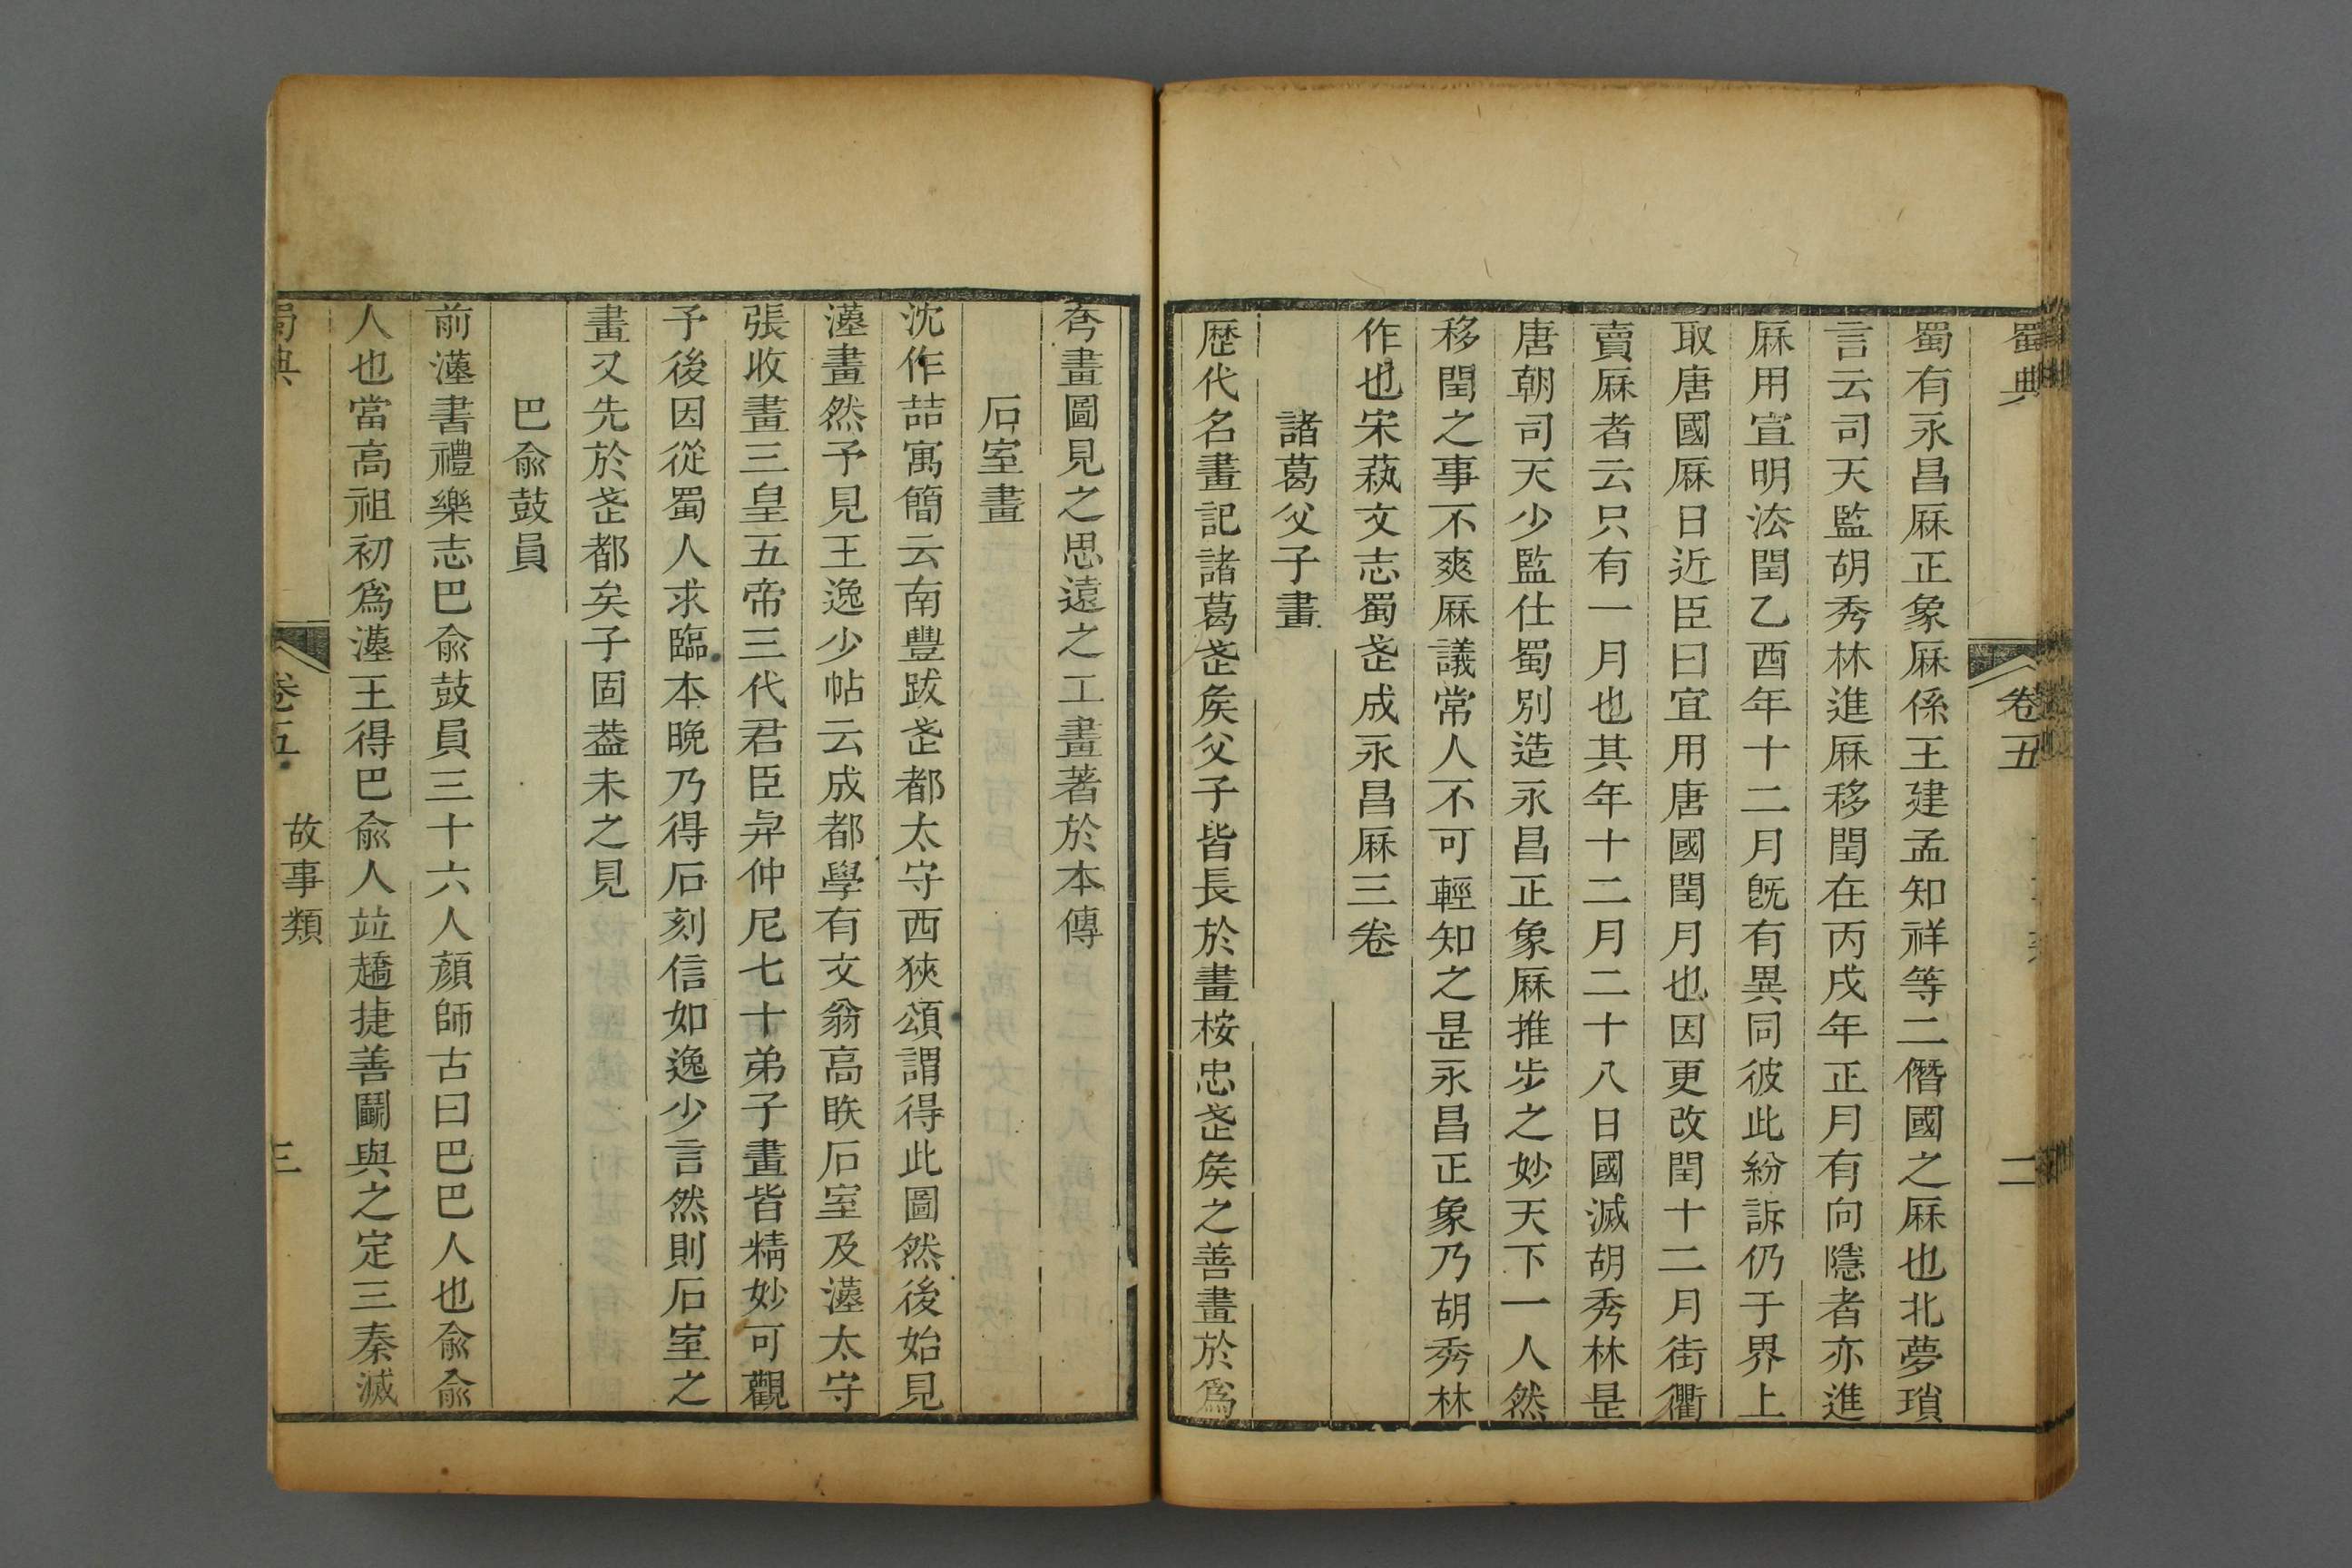 蜀典
卷五
二
蜀有永昌厤正象厤係王建孟知祥等二僭國之厤也北夢瑣
言云司天監胡秀林進厤移閏在丙戌年正月有向隱者亦進
厤用宣明法閏乙酉年十二月旣有異同彼此紛訴仍于界上
取唐國厤日近臣曰宜用唐國閏月也因更改閏十二月街衢
賣厤者云只有一月也其年十二月二十八日國滅胡秀林是
唐朝司天少監仕蜀別造永昌正象厤推步之妙天下一人然
移閏之事不爽厤議常人不可輕知之是永昌正象乃胡秀林
作也宋蓺文志蜀武成永昌厤三卷
諸葛父子畫
歷代名畫記諸葛武矦父子皆長於畫桉忠武矦之善畫於爲
夸畫圖見之思遠之工畫著於本傳
石室畫
沈作喆寓簡云南豐跋武都太守西狹頌謂得此圖然後始見
漢畫然予見王逸少帖云成都學有文翁高䀢石室及漢太守
張收畫三皇五帝三代君臣與仲尼七十弟子畫皆精妙可觀
予後因從蜀人求臨本晚乃得石刻信如逸少言然則石室之
畫又先於武都矣子固葢未之見
巴俞鼓員
前漢書禮樂志巴俞鼓員三十六人顏師古曰巴巴人也俞俞
人也當高祖初爲漢王得巴俞人竝趫捷善鬭與之定三秦滅
蜀典
卷五
故事類
三